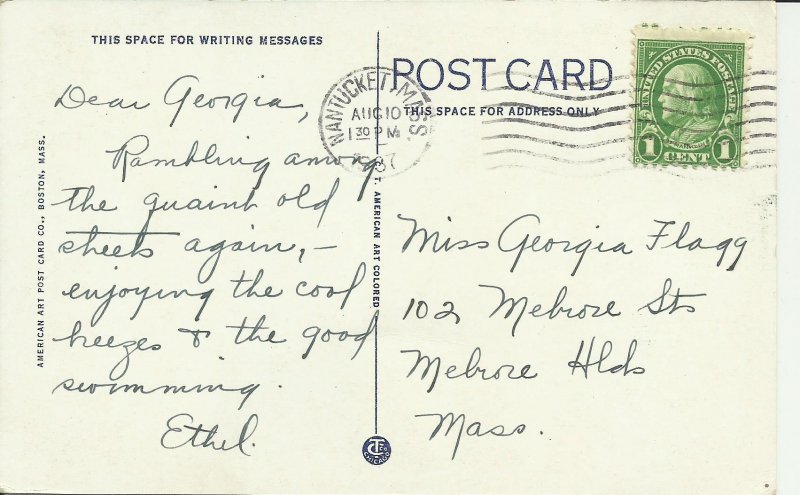 THIS SPACE FOR WRITING MESSAGES
Dear Georgia,
Rambling among
the quaint old
streets again, -
enjoying the cool
breezes & the good
swimming.
Ethel.
AMERICAN ART POST CARD CO., BOSTON, MASS.
T. AMERICAN ART COLORED
CHICAGO
POST CARD
THIS SPACE FOR ADDRESS ONLY
NANTUCKET, MASS.
AUG 10
1 30 PM
UNITED STATES POSTAGE
FRANKLIN
1 CENT 1
Miss Georgia Flagg
102 Melrose Sts
Melrose Hlds
Mass.